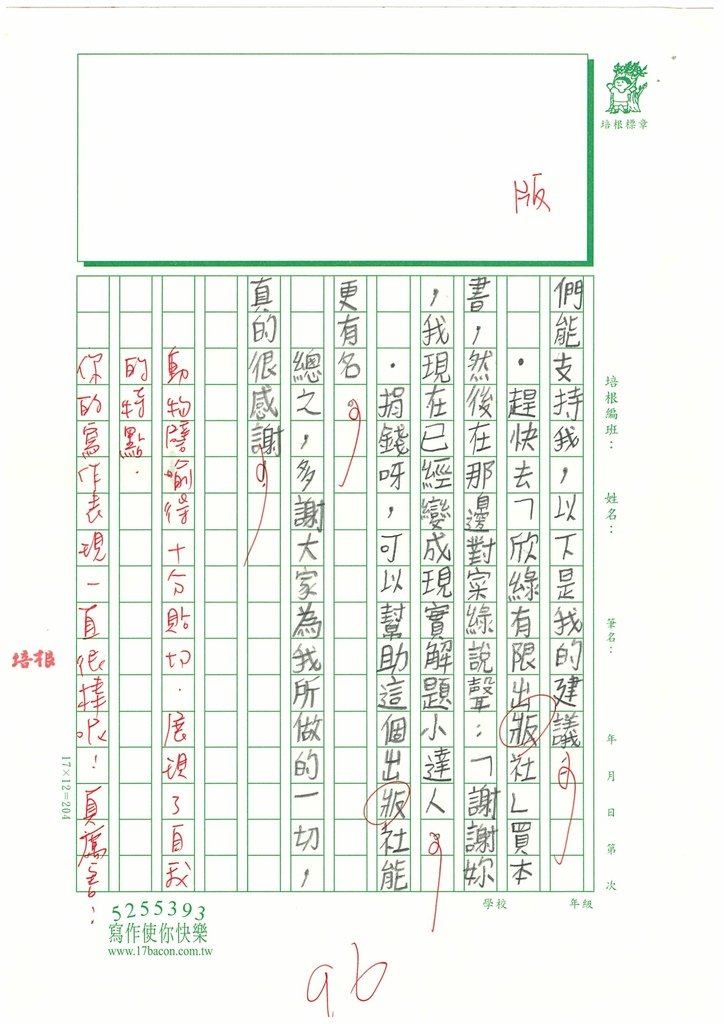 版
培根標章
培根編班：
姓名：
筆名：
年 月 日 第 次
年級
學校
們能支持我，以下是我的建議
．趕快去「欣綠有限出版社」買本
書，然後在那邊對寀綠說聲：「謝謝妳
，我現在已經變成現實解題小達人
．捐錢呀，可以幫助這個出版社能
更有名
總之，多謝大家為我所做的一切，
真的很感謝
動物譬喻得十分貼切．展現了自我
的特點．
你的寫作表現一直很棒呢！
培根
17×12=204
5255393
寫作使你快樂
www.17bacon.com.tw
96